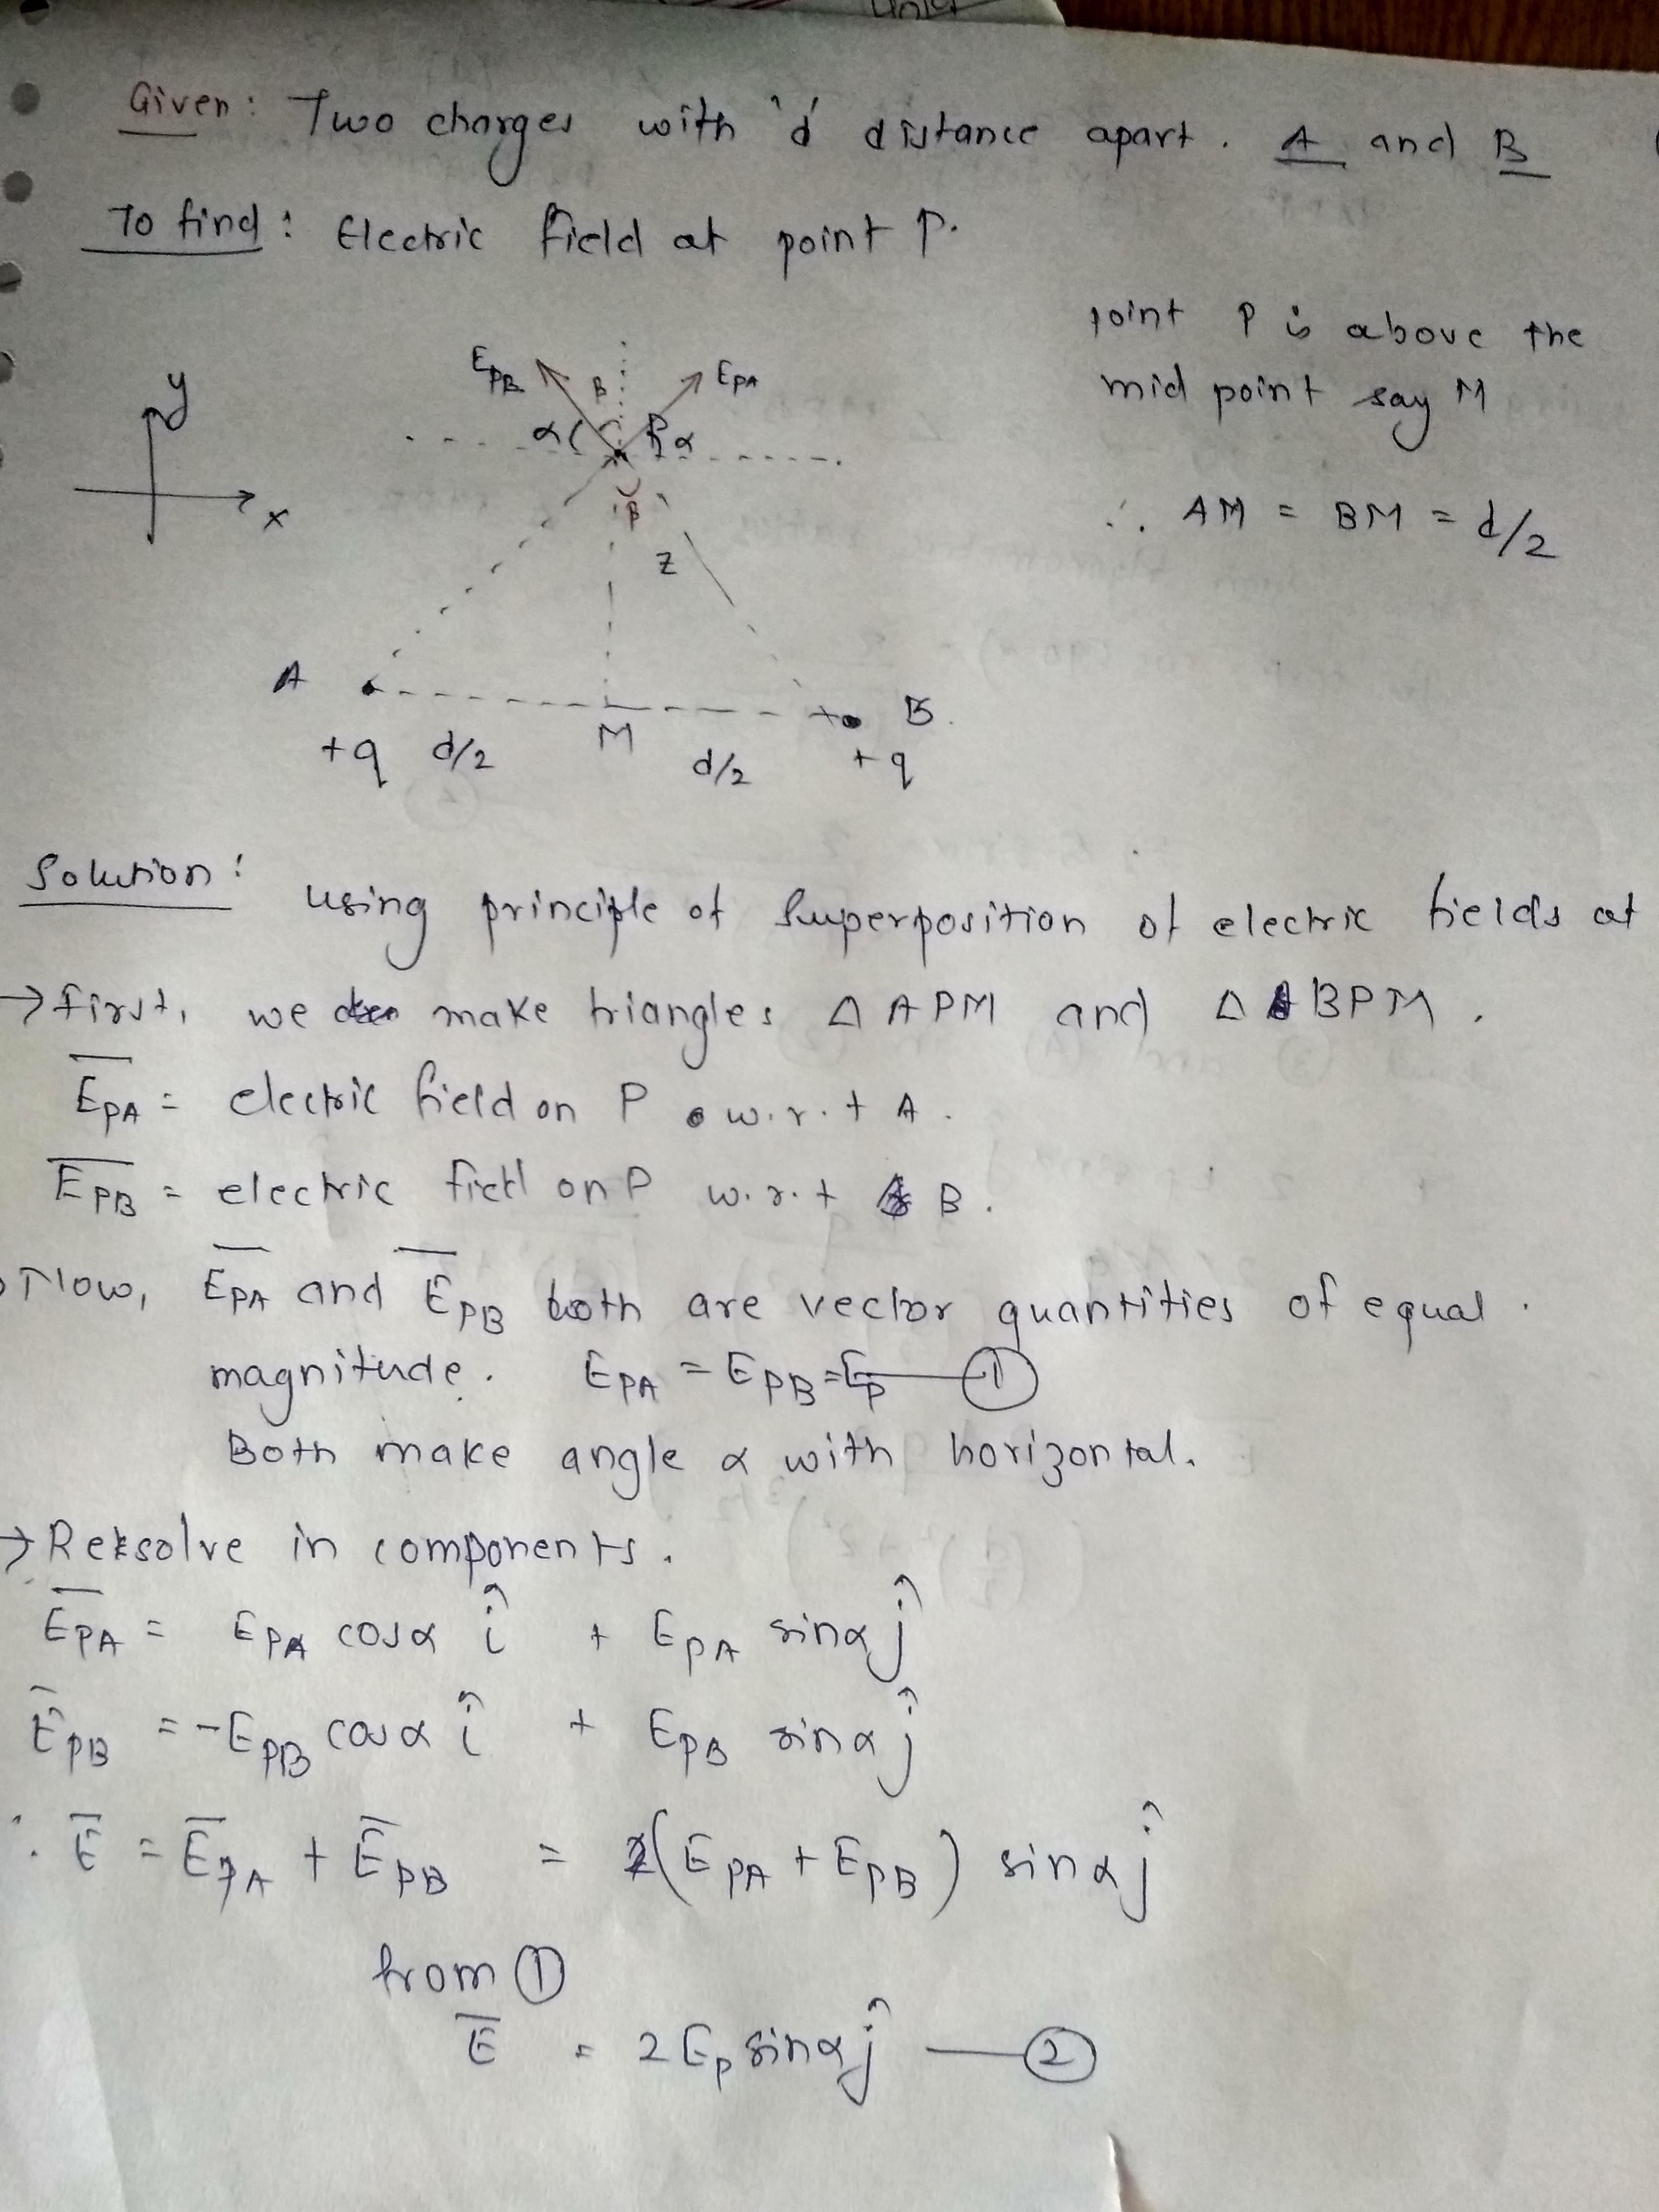 Given: Two charges with 'd' distance apart. A and B
To find: Electric field at point P.
point P is above the
mid point say M
∴ AM = BM = d/2
y
x
E_PB
β
E_PA
α
P
α
β
z
A
M
B
+q d/2
d/2
+q
Solution: Using principle of Superposition of electric fields at
→ first, we make triangles Δ APM and Δ BPM.
E̅_PA = electric field on P w.r.t A.
E̅_PB = electric field on P w.r.t B.
Now, E̅_PA and E̅_PB both are vector quantities of equal
magnitude. E_PA = E_PB = E_P — ①
Both make angle α with horizontal.
→ Resolve in components.
E̅_PA = E_PA cosα î + E_PA sinα ĵ
E̅_PB = -E_PB cosα î + E_PB sinα ĵ
∴ E̅ = E̅_PA + E̅_PB = (E_PA + E_PB) sinα ĵ
from ①
E̅ = 2 E_P sinα ĵ — ②